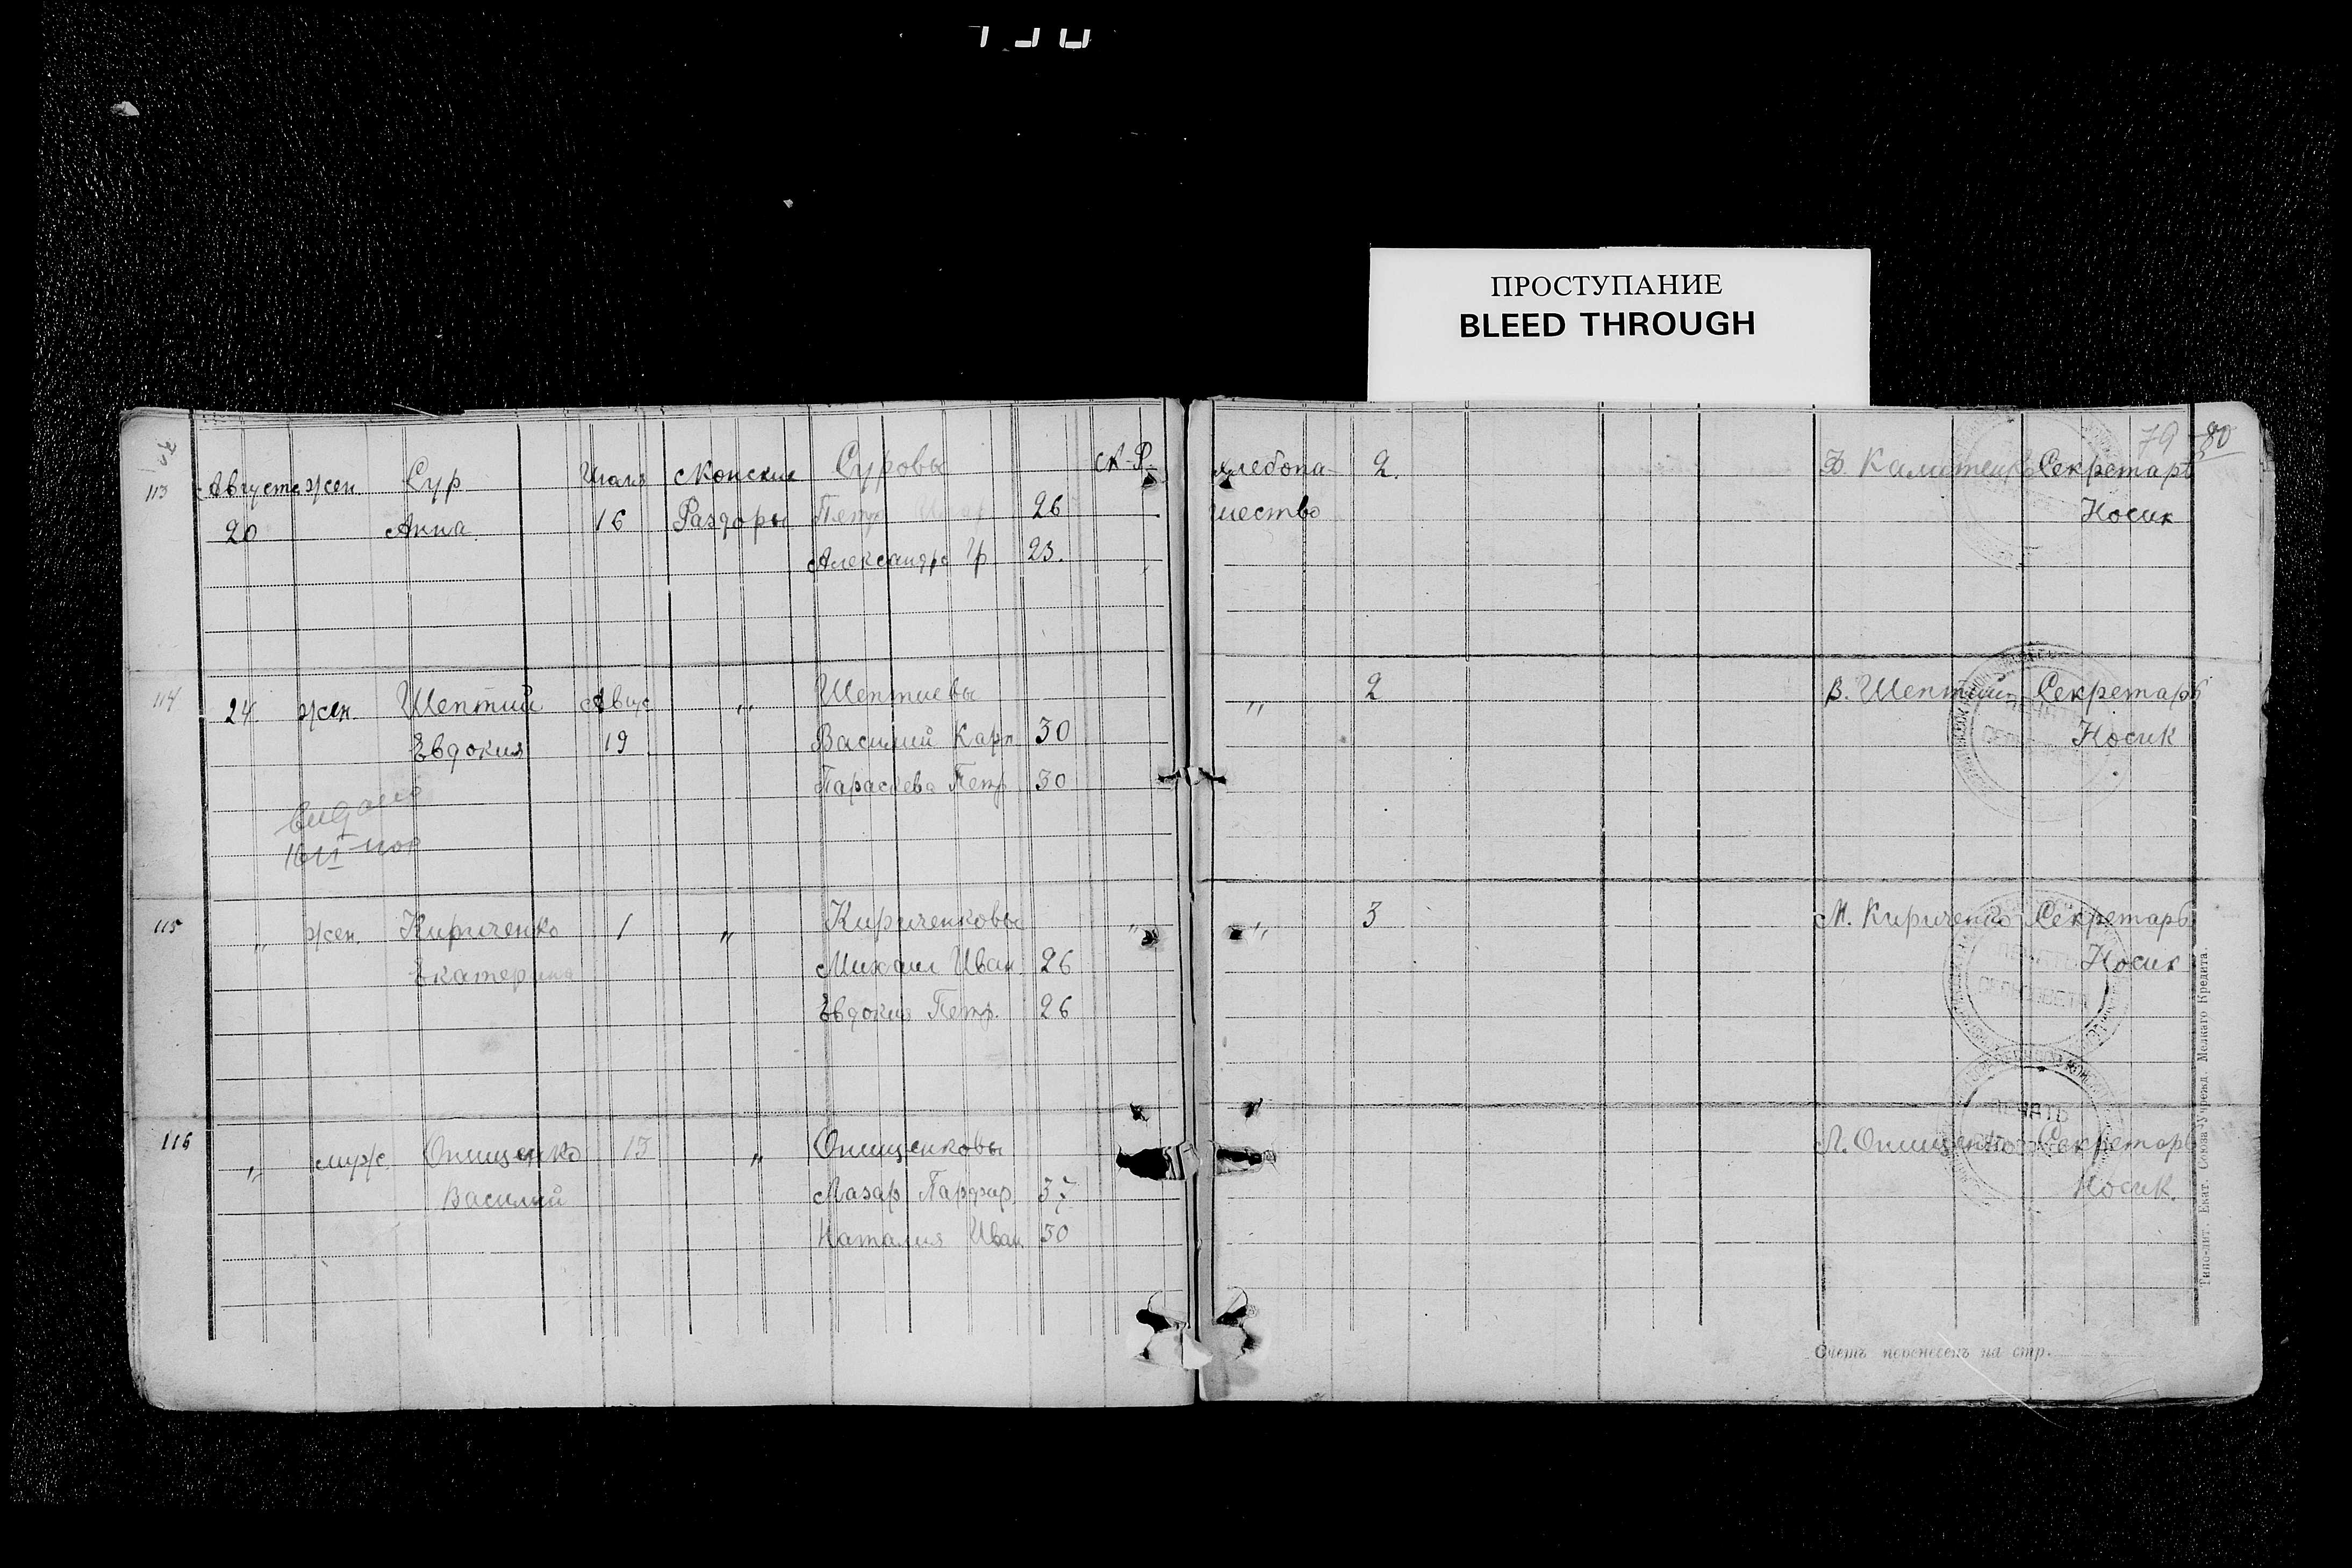 ПРОСТУПАНИЕ
BLEED THROUGH
79 80
113 Августа жен. Сур Июля с Конские Суровы К-Р. хлебопа- 2. Калитенко Секретарь
20 Анна 16 Раздоры Петр 26 шество Носик
Александра Гр 23.
114 24 жен. Шептий Авус " Шептиевы " 2 В. Шептий Секретарь
Евдокия 19 Василий Карп 30 Носик
Параскева Петр 30
видано
115 " жен. Кириченко 1 " Кириченковы " " 3 М. Кириченко Секретарь
Екатерина Михаил Иван 26 Носик
Евдокия Петр. 26
116 " муж. Онищенко 13 " Онищенковы Л. Онищенко Секретарь
Василий Лазар Парфир. 37 Носик.
Наталия Иван 30
ПЕЧАТЬ
СЕЛЬСОВЕТА
Типо-лит. Екат. Союза Учрежд. Мелкаго Кредита.
Счетъ перенесенъ на стр.